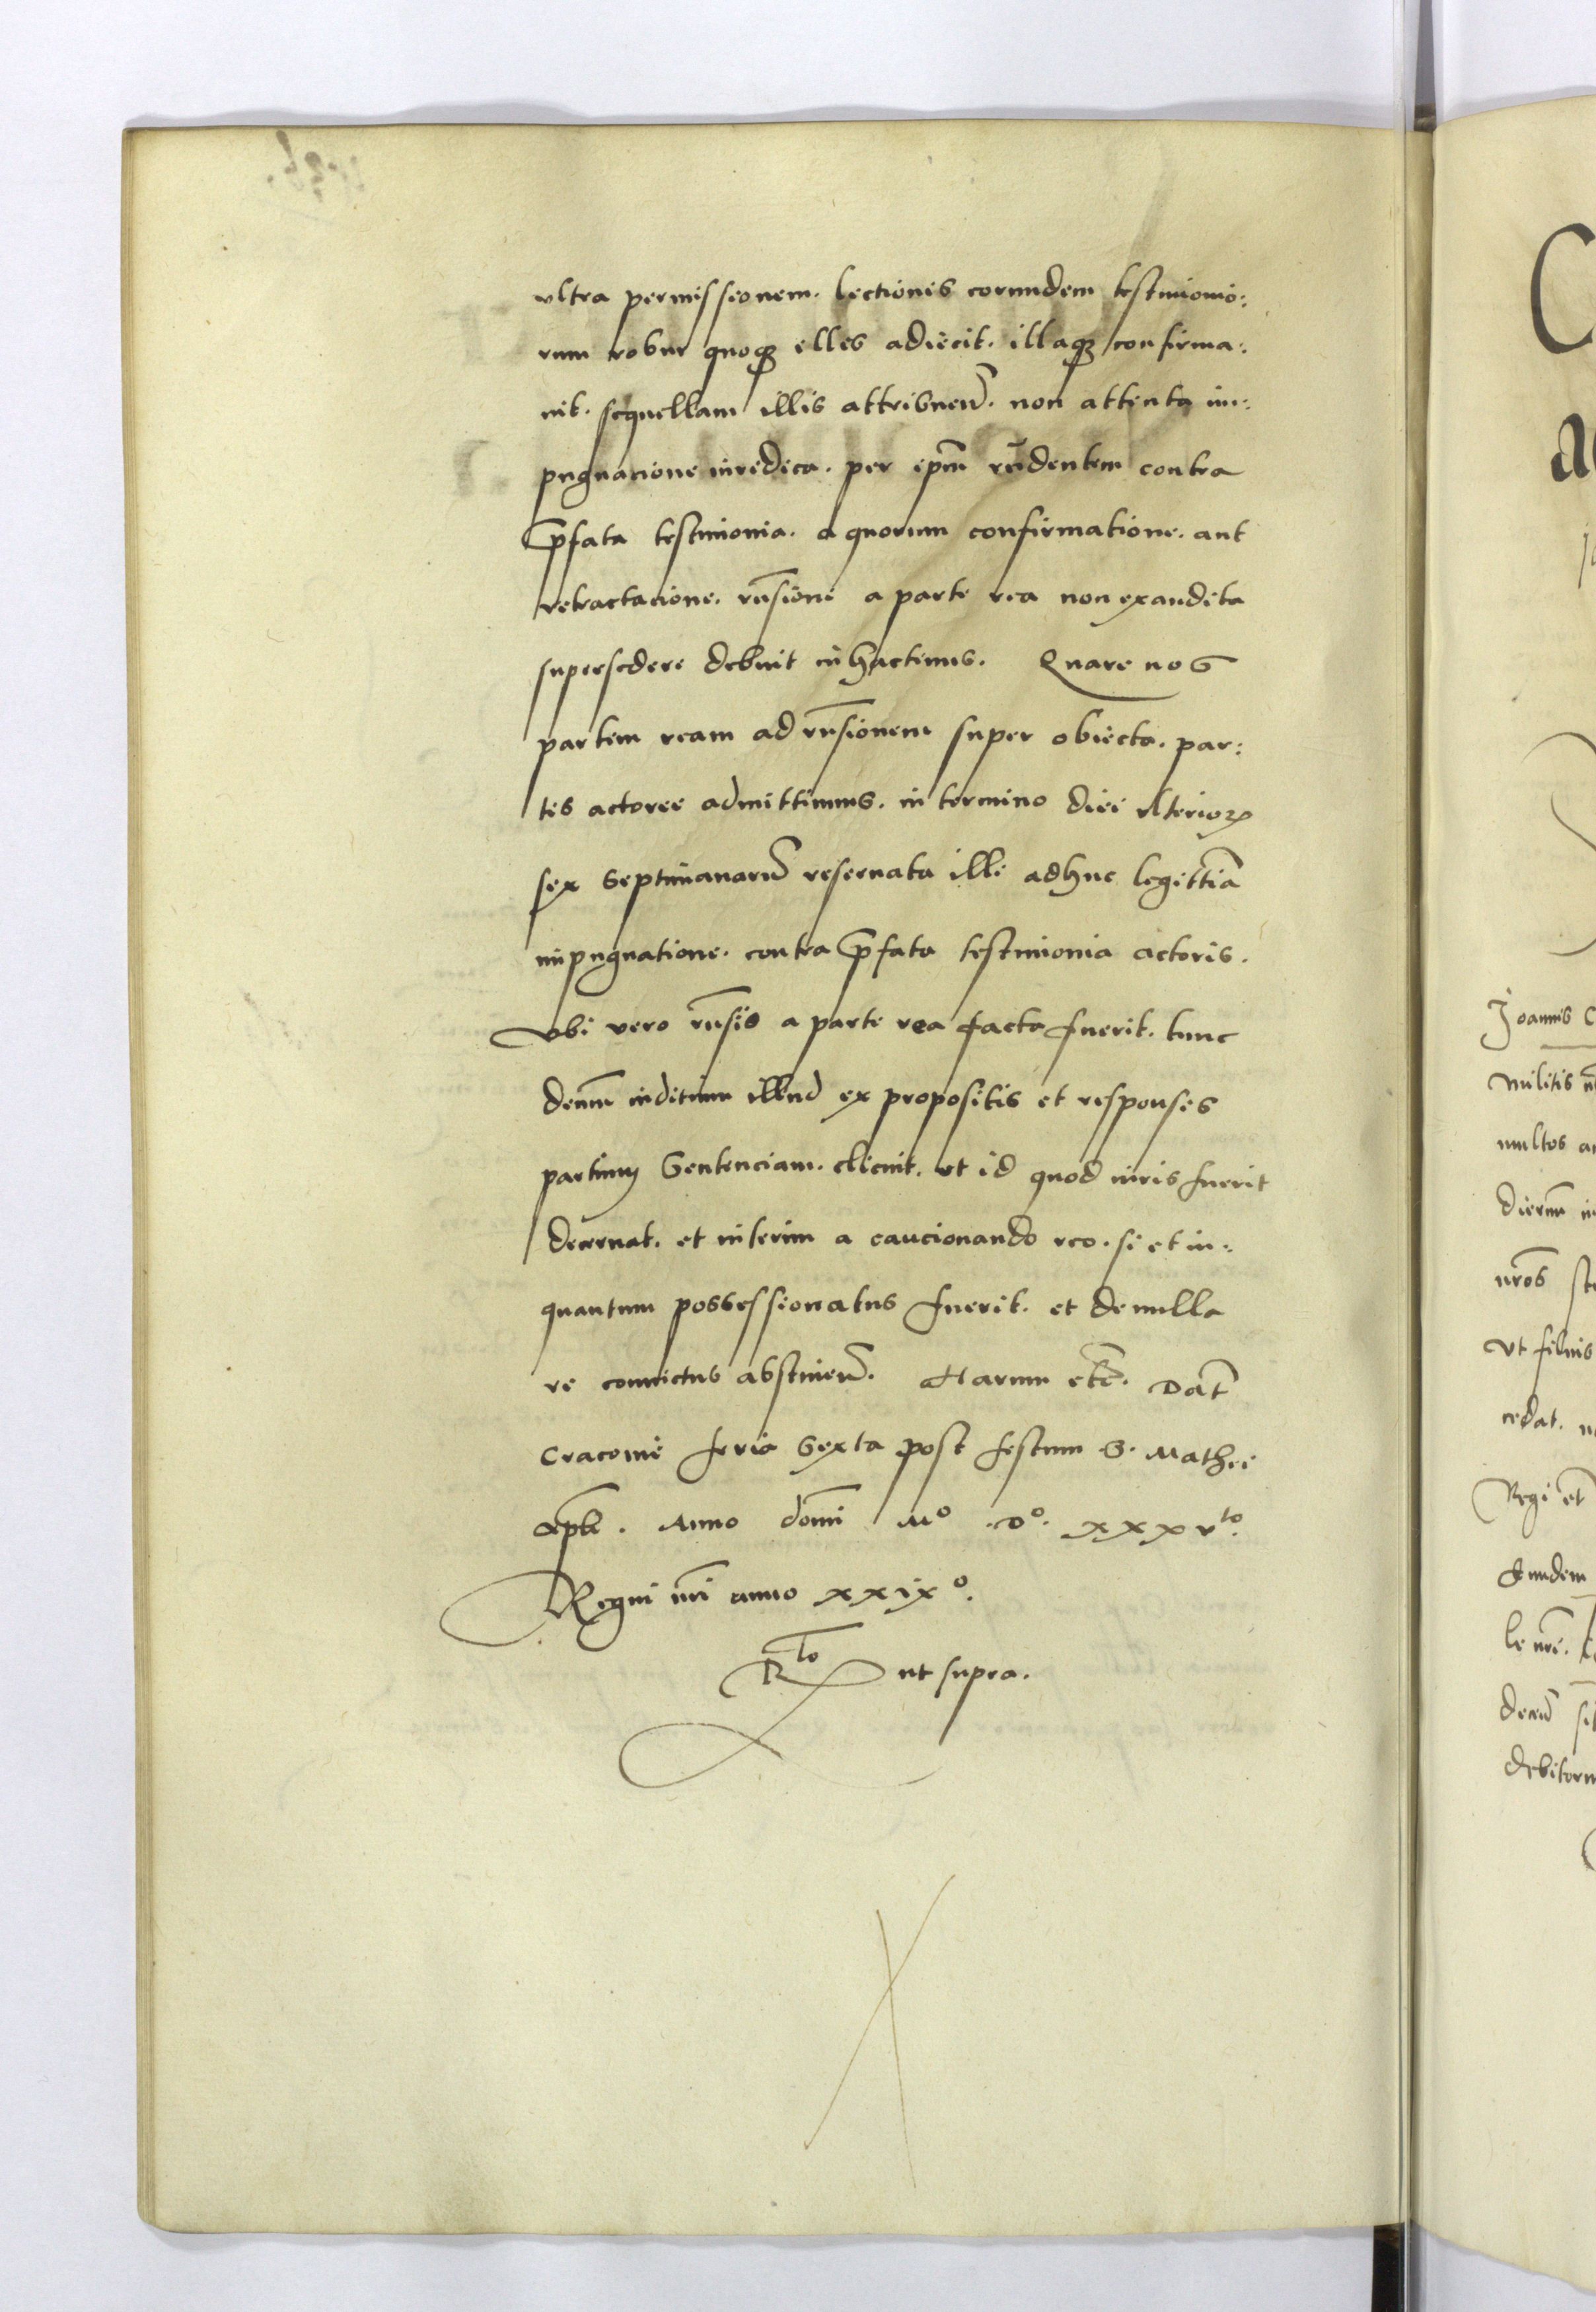 vltra permissionem. lectionis eorundem testimonio:
rum robur quoqꝫ illis adiecit. illaqꝫ confirma:
uit. sequellam illis attribueñ. non attenta im:
pugnacione iuridica. per ipm̃ rñdentem contra
p̃fata testimonia. a quorum confirmatione. aut
retractacione. rñsione a parte rea non exaudita
supersedere debuit in hactenus. Quare nos
partem ream ad rñsionem super obiecta. par:
tis actoree admittimus. in termino diei vlterioꝝ
sex septimanarũ reseruata illi adhuc legittiã
impugnatione. contra p̃fata testimonia actoris.
Vbi vero rñsio a parte rea facta fuerit. tunc
demũ iuditium illud ex propositis et responsis
partium Sentenciam. eliciat. et id quod iuris fuerit
decernat. et interim a caucionando reo. si et in:
quantum possessionatus fuerit. et de nulla
re conuictus abstineñ. Harum etc̃. Dat̃
Cracouie feria Sexta post festum S. Mathei
Apłi. Anno domĩ Mº .Dº. xxxvto.
Regni nr̃i anno xxixº.
Rlo ut supra.
Joannis C
militis
multos
dierum
nr̃os
Vt filius
cedat.
Regi et
Eundem
le nr̃e.
deceñ
debitorum